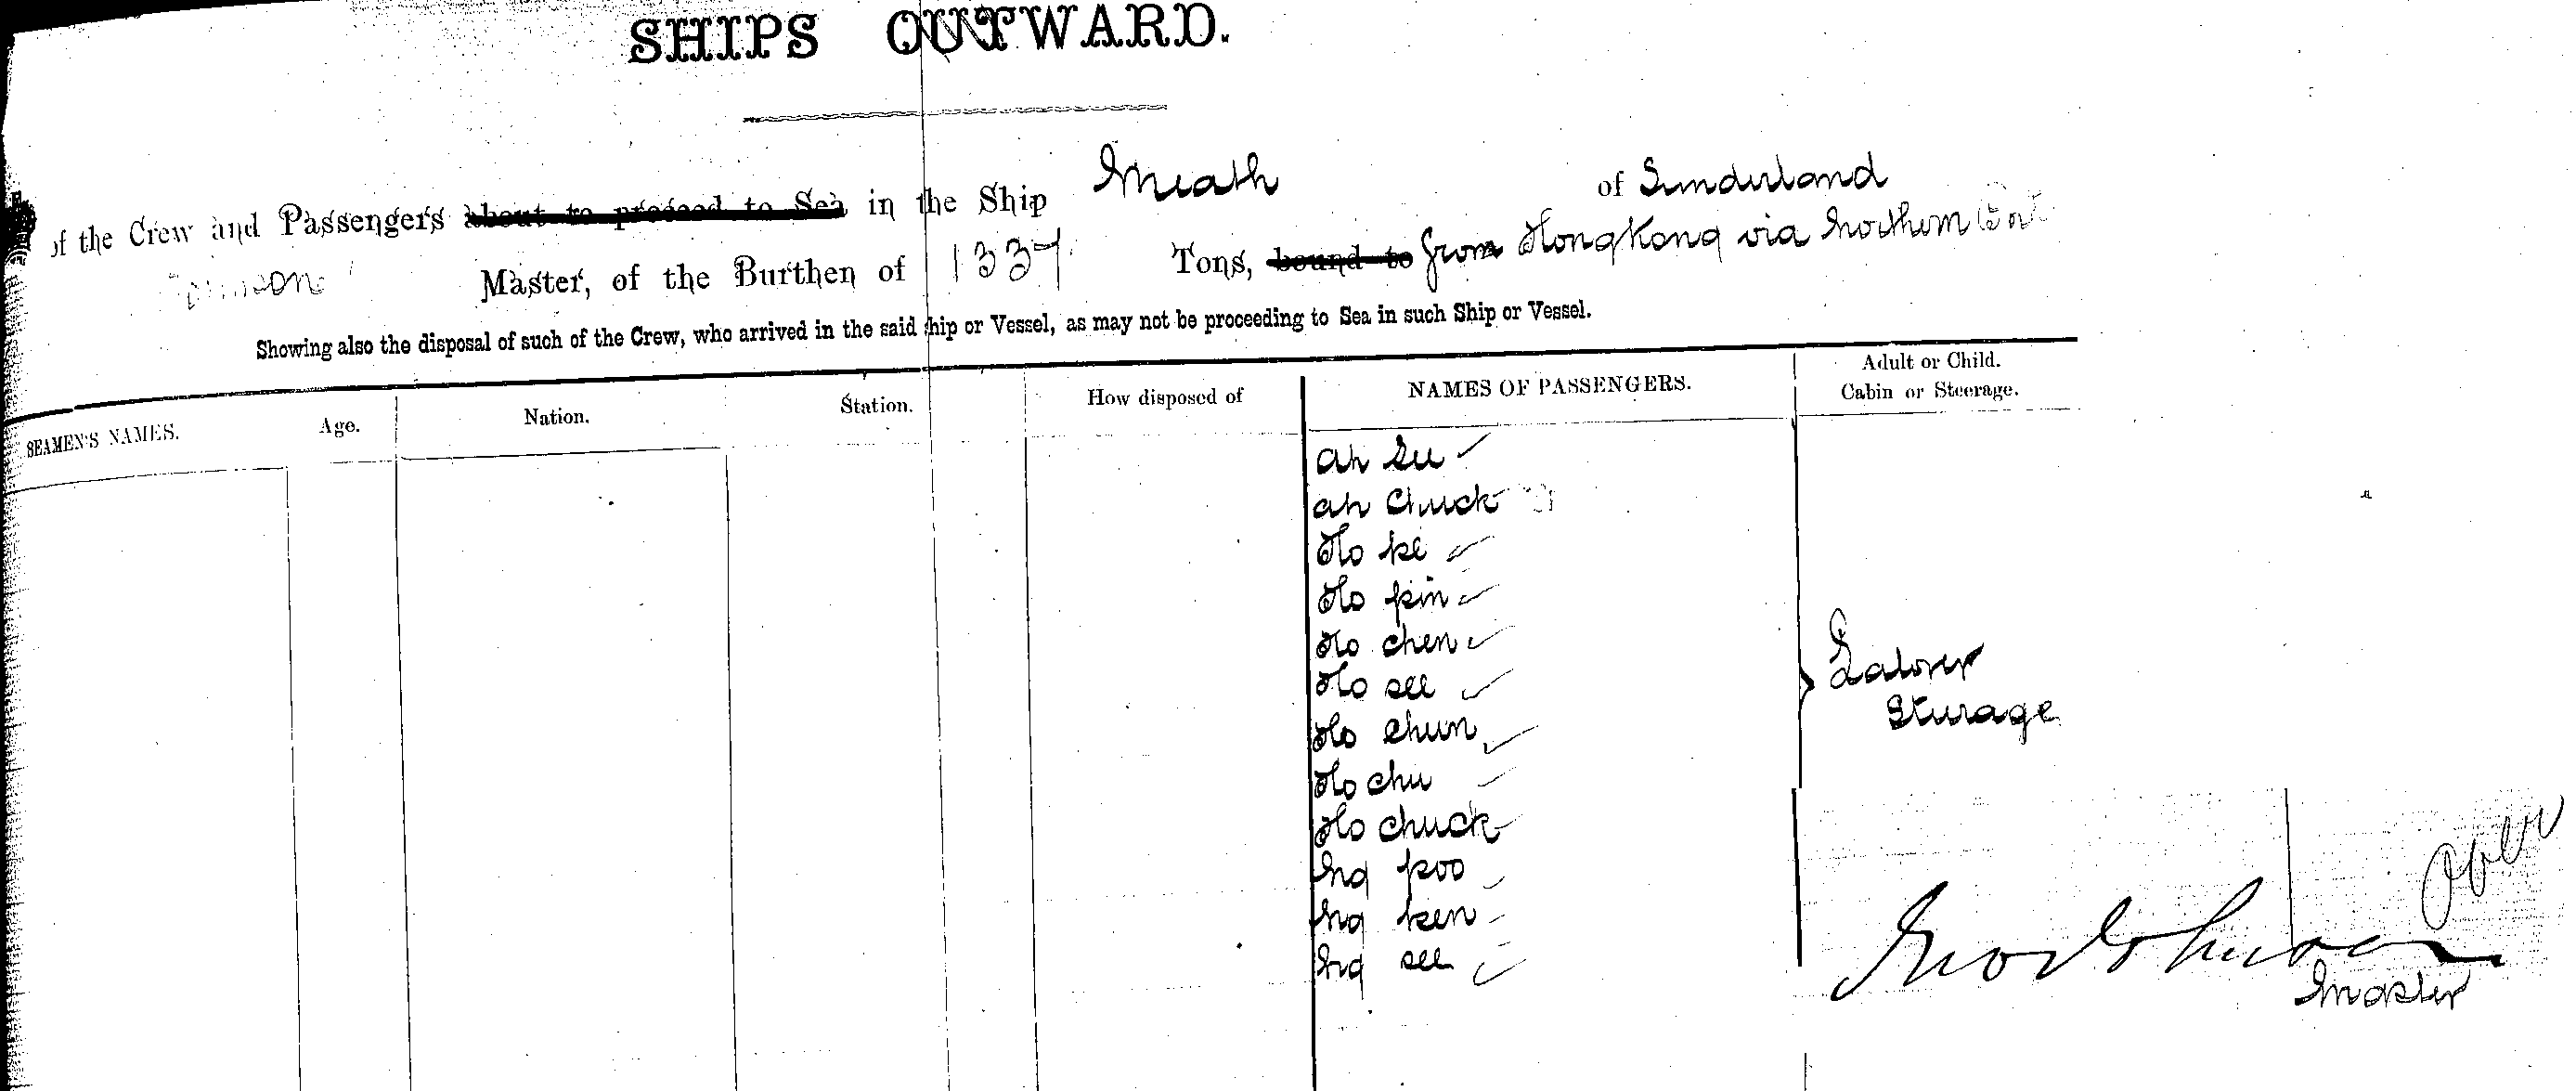 SHIPS OUTWARD.
of the Crew and Passengers about to proceed to Sea in the Ship Meath of Sunderland
Master, of the Burthen of 1337 Tons, bound to from HongKong via Northern
Showing also the disposal of such of the Crew, who arrived in the said ship or Vessel, as may not be proceeding to Sea in such Ship or Vessel.
SEAMEN'S NAMES. Age. Nation. Station. How disposed of NAMES OF PASSENGERS. Adult or Child. Cabin or Steerage.
Ah Su
Ah Chuck
Ho ke
Ho pin
Ho chen
Ho see
Ho chun
Ho chu
Ho chuck
Ng poo
Ng ken
Ng see
Steerage
Master